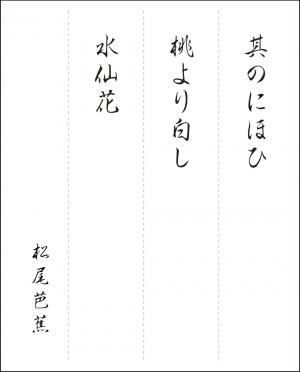 其のにほひ
桃より白し
水仙花
松尾芭蕉